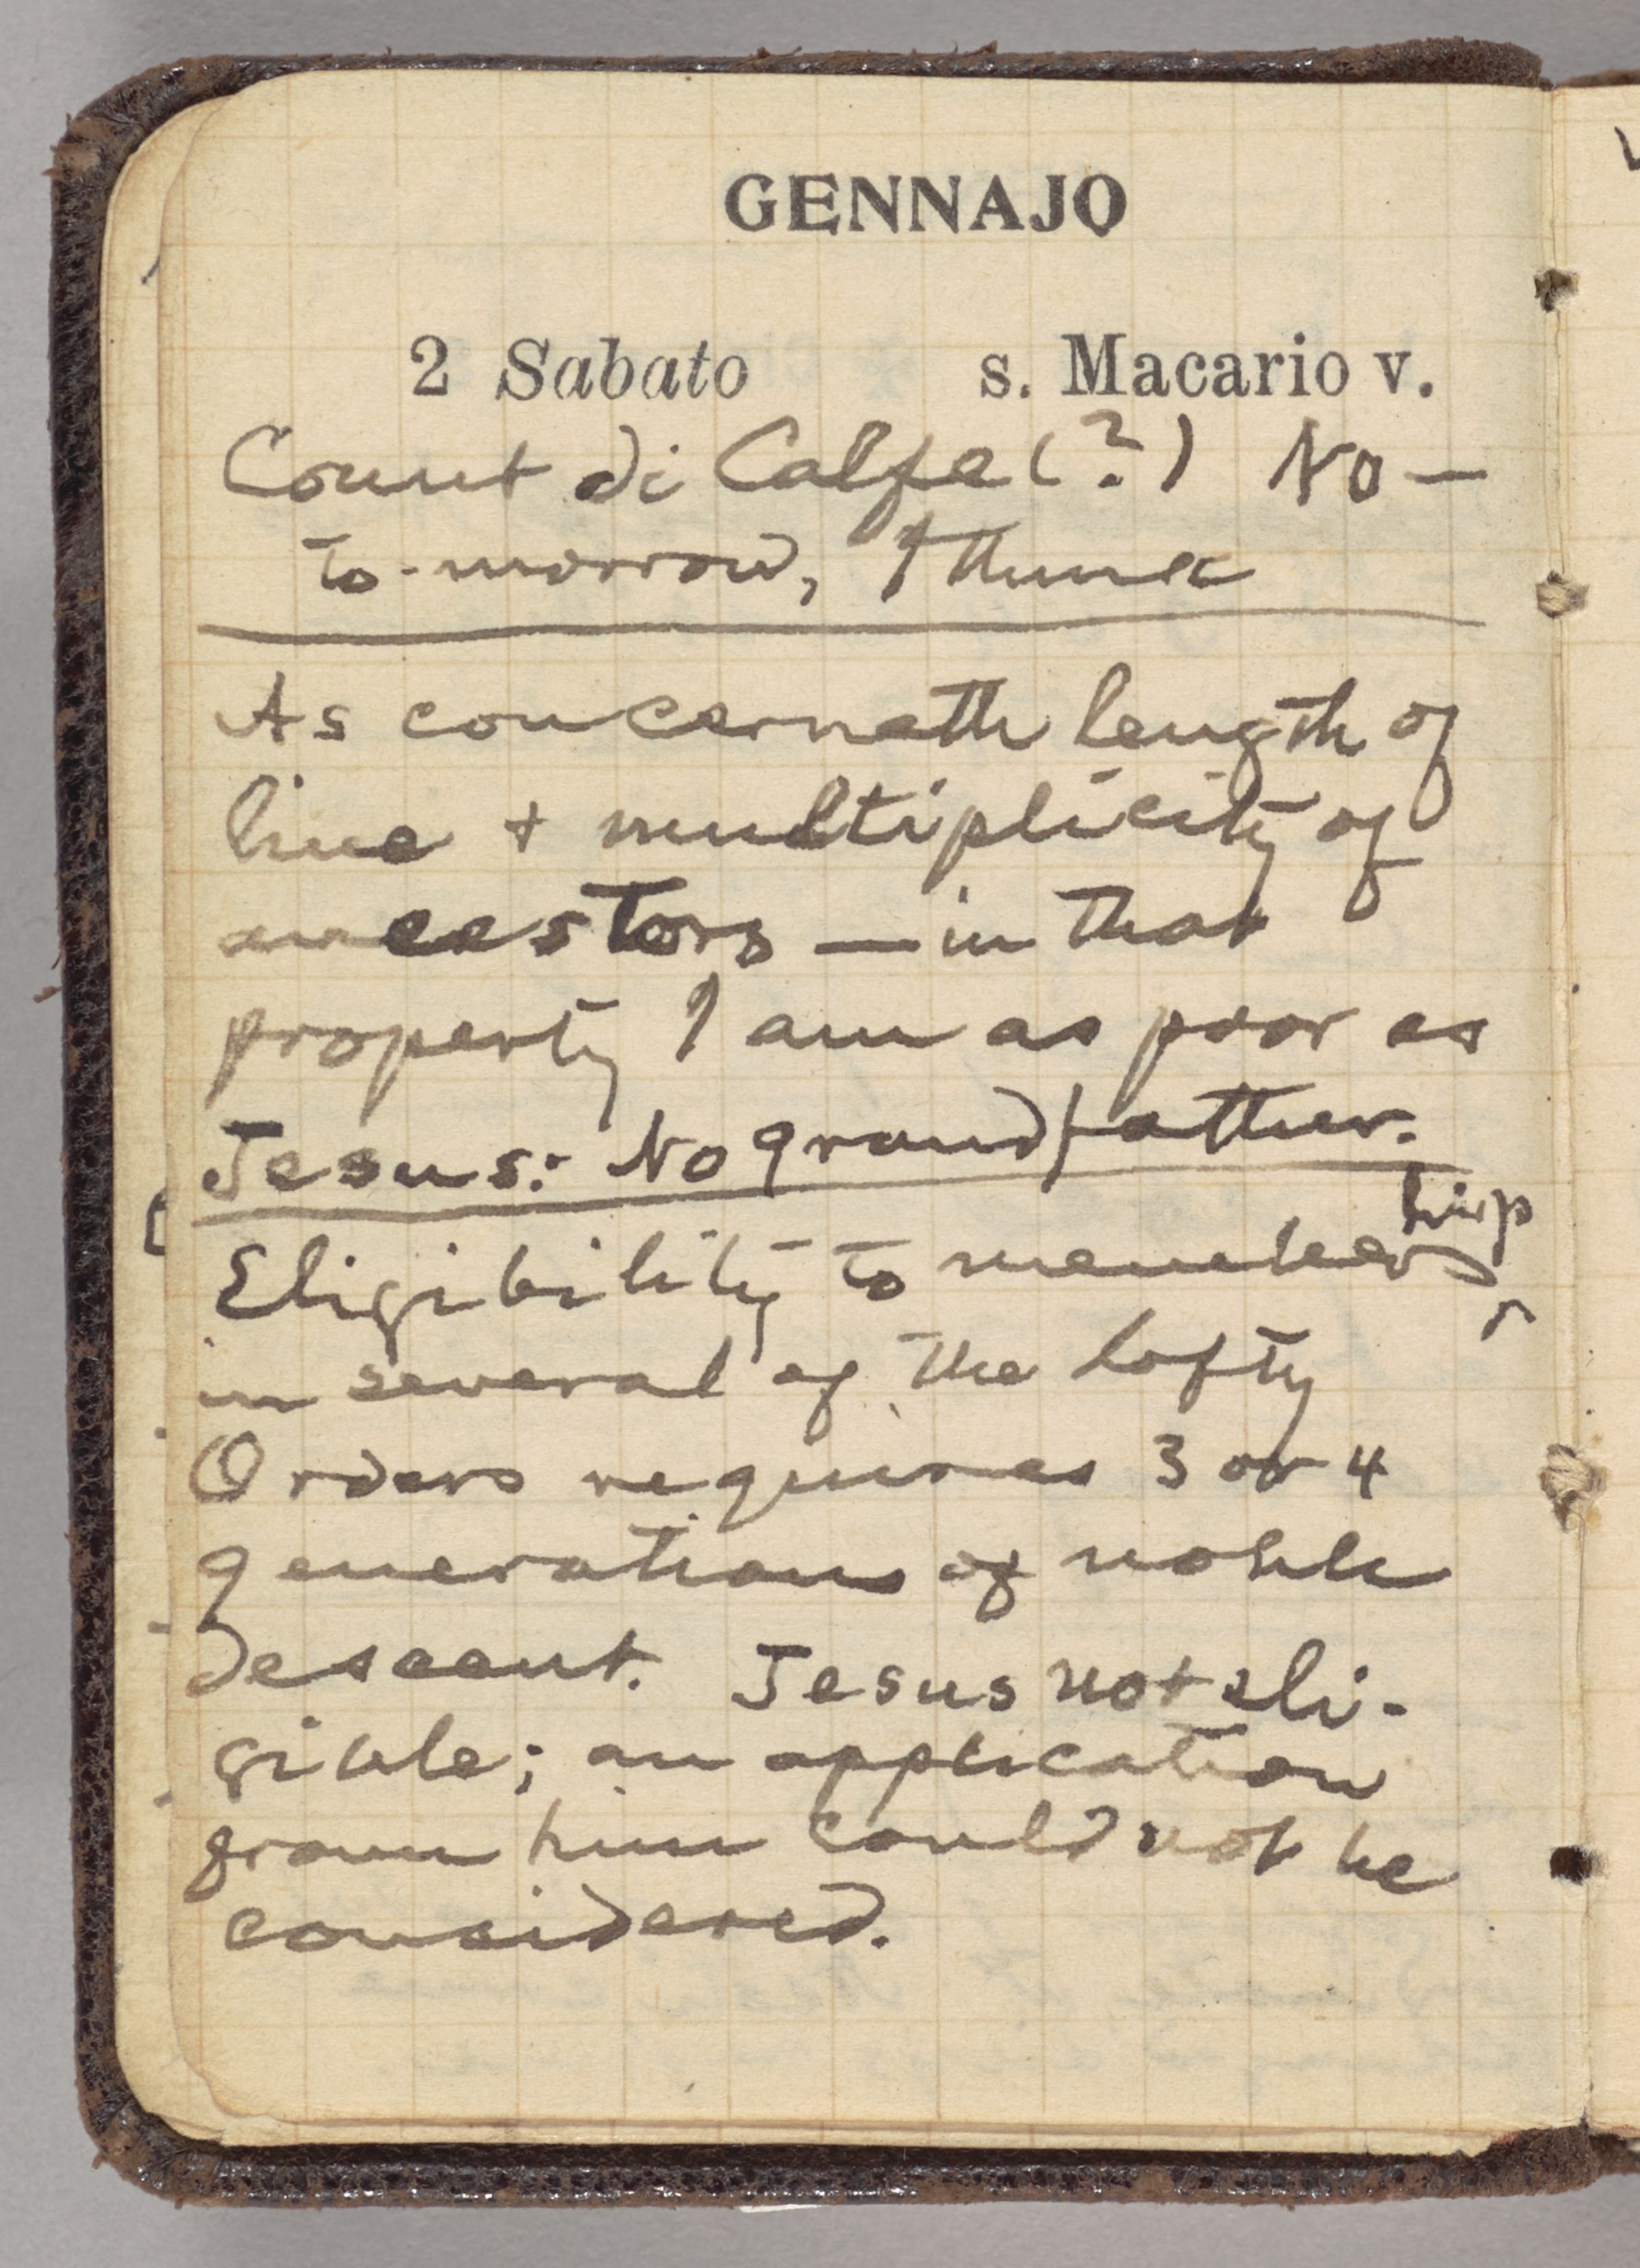 GENNAJO
2 Sabato s. Macario v.
Count di Calfe (?) No —
to-morrow, I think
As concerneth length of
line + multiplicity of
ancestors — in that
property I am as poor as
Jesus: No grandfather.
hip
Eligibility to members
in several of the lofty
Orders requires 3 or 4
generations of noble
descent. Jesus not eli-
gible; an application
from him could not be
considered.